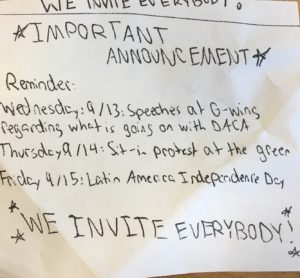 WE INVITE EVERYBODY!
*IMPORTANT
ANNOUNCEMENT*
Reminder:
Wednesday: 9/13: Speeches at G-wing
regarding what is going on with DACA
Thursday 9/14: Sit-in protest at the green
Friday 9/15: Latin America Independence Day
WE INVITE EVERYBODY!